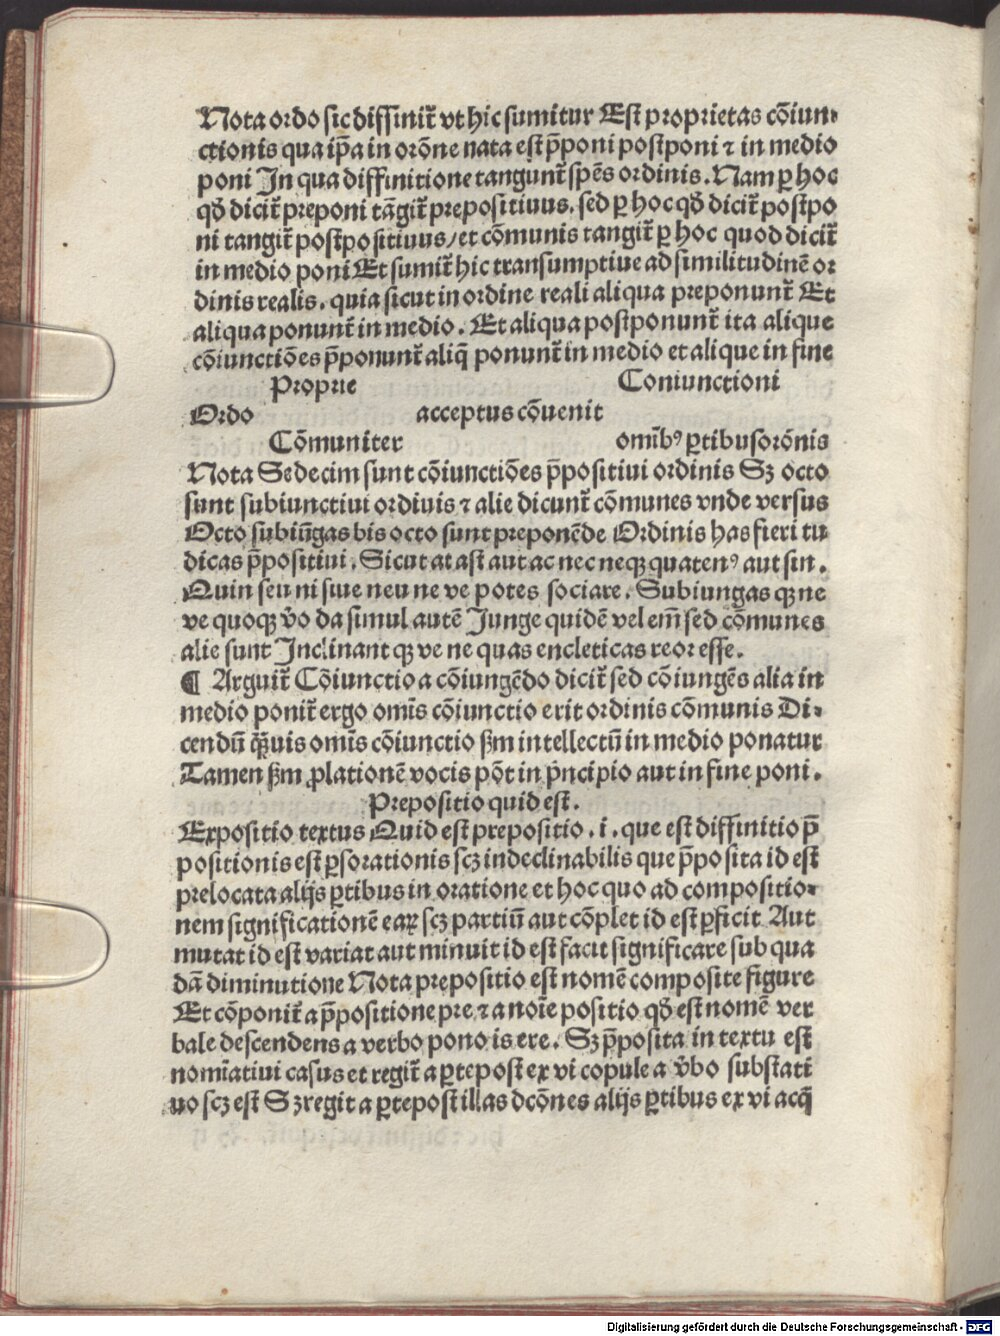 Nota ordo sic diffinit᷑ vt hic sumitur Est proprietas cōiun⸗
ctionis qua ip̄a in orōne nata est p̄poni postponi ⁊ in medio
poni In qua diffinitione tangunt᷑ spēs ordinis. Nam ꝑ hoc
qd̄ dicit᷑ preponi tāgit᷑ prepositiuus. sed ꝑ hoc qd̄ dicit᷑ postpo
ni tangit᷑ postpositiuus/ et cōmunis tangit᷑ ꝑ hoc quod dicit᷑
in medio poni Et sumit᷑ hic transumptiue ad similitudinē or
dinis realis. quia sicut in ordine reali aliqua preponunt᷑ Et
aliqua ponunt᷑ in medio. Et aliqua postponunt᷑ ita alique
cōiunctiōes p̄ponunt᷑ aliq̄ ponunt᷑ in medio et alique in fine
Proprie Coniunctioni
Ordo acceptus cōuenit
Cōmuniter omībꝰ ꝑtibus orōnis
Nota Sedecim sunt cōiunctiōes p̄positiui ordinis Sꝫ octo
sunt subiunctiui ordiuis ⁊ alie dicunt᷑ cōmunes vnde versus
Octo subiūgas bis octo sunt preponēde Ordinis has fieri tu
dicas p̄positiui. Sicut at ast aut ac nec neqꝫ quatenꝰ aut sin.
Quin seu ni siue neu ne ve potes sociare. Subiungas qꝫ ne
ve quoqꝫ v̄o da simul autē Junge quidē vel em̄ sed cōmunes
alie sunt Inclinant qꝫ ve ne quas encleticas reor esse.
¶ Arguit᷑ Cōiunctio a cōiungēdo dicit᷑ sed cōiungēs alia in
medio ponit᷑ ergo omīs cōiunctio erit ordinis cōmunis Di⸗
cendū q̄uis omīs cōiunctio ẜm intellectū in medio ponatur
Tamen ẜm ꝓlationē vocis pōt in p̄ncipio aut in fine poni.
Prepositio quid est.
Expositio textus Quid est prepositio .i. que est diffinitio p̄
positionis est ꝑs orationis scꝫ indeclinabilis que p̄posita id est
prelocata alijs ꝑtibus in oratione et hoc quo ad compositio⸗
nem significationē eaꝝ scꝫ partiū aut cōplet id est ꝑficit Aut
mutat id est variat aut minuit id est facit significare sub qua
dā diminutione Nota prepositio est nomē composite figure
Et cōponit᷑ a p̄positione pre ⁊ a noīe positio qd̄ est nomē ver
bale descendens a verbo pono is ere. Sꝫ p̄posita in textu est
nomīatiui casus et regit᷑ a ꝑte post ex vi copule a v̄bo substati
uo scꝫ est Sꝫ regit a ꝑte post illas dcōnes alijs ꝑtibus ex vi acq̄
Digitalisierung gefördert durch die Deutsche Forschungsgemeinschaft - DFG